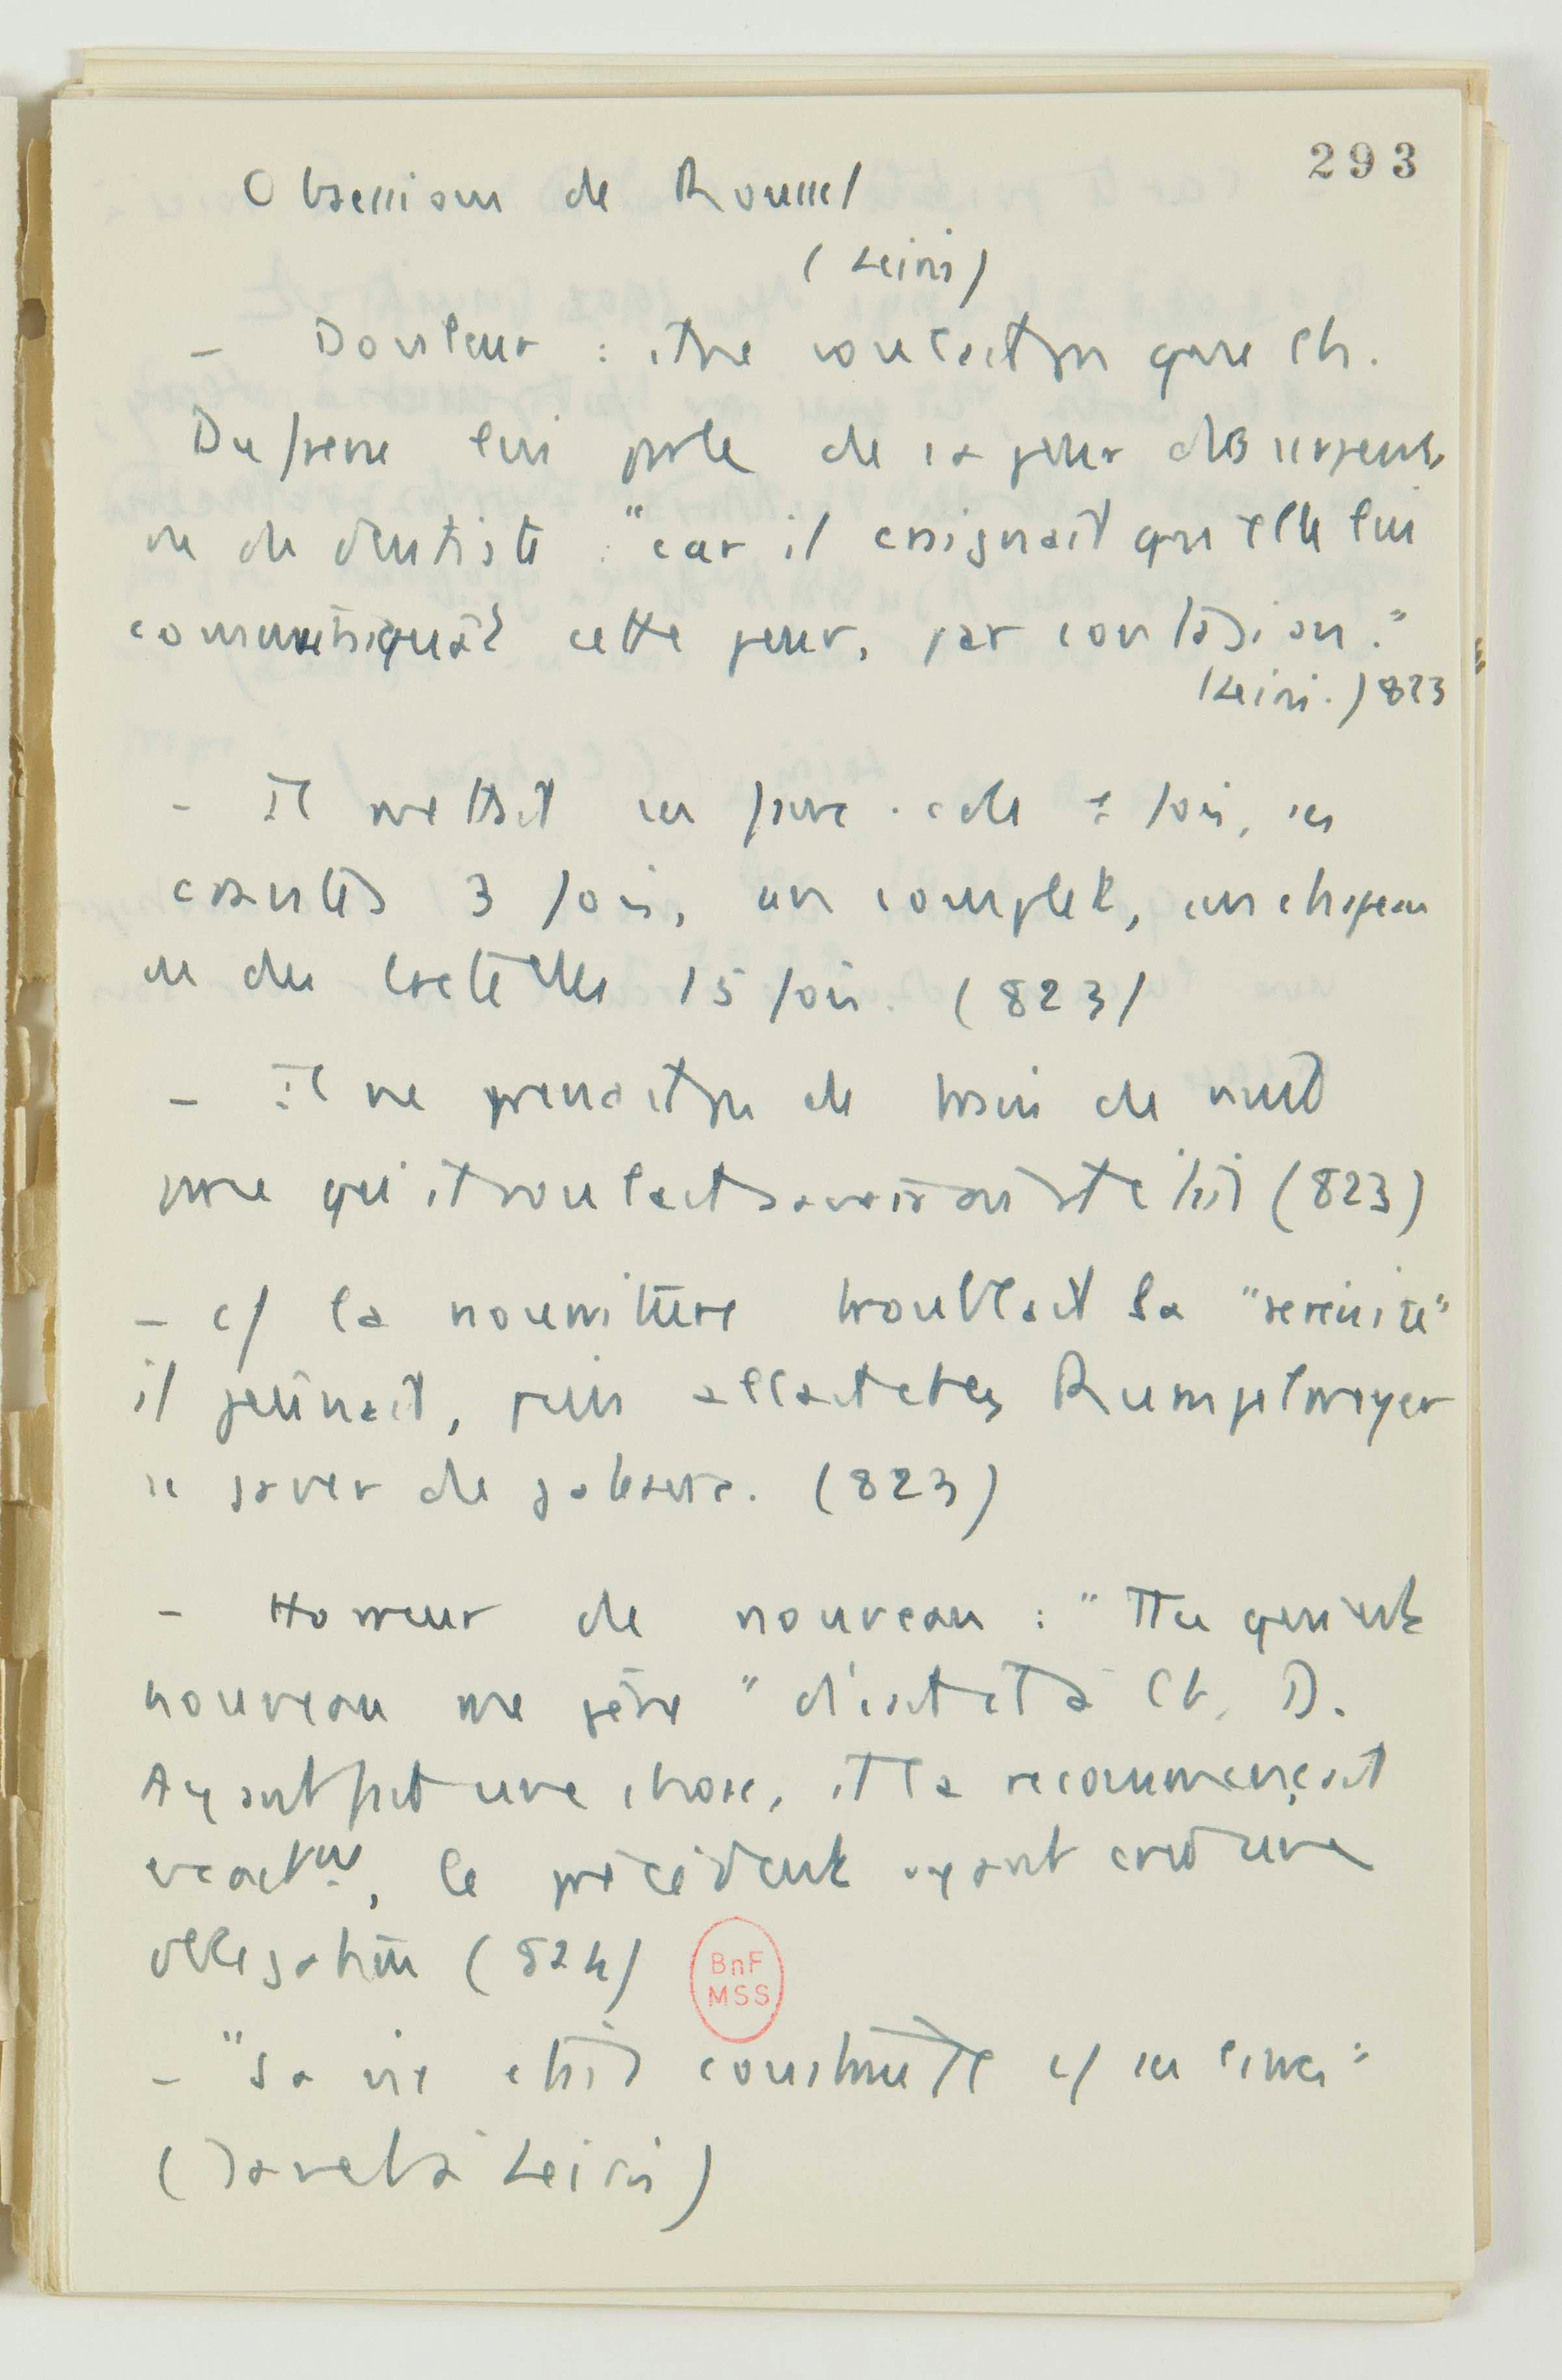 293
Obsessions de Roussel
(Leiris)
- Douleur : il ne voulait pas que Ch.
Dufrène lui parle de sa peur des serpents
ou de dentiste "car il craignait qu'elle lui
communiquât cette peur, par contagion."
(Leiris.) 823
- Il mettait ses faux-cols 1 fois, ses
cravates 3 fois, un complet, un chapeau
ou des bretelles 15 fois. (823)
- Il ne prenait pas de train de nuit
parce qu'il voulait savoir où il était (823)
- c/ la nourriture troublait sa "sérénité"
il jeûnait, puis allait chez Rumpelmayer
se gaver de gâteaux. (823)
- Horreur du nouveau : "Tt ce qui est
nouveau me gêne" disait-il à Ch. D.
Ayant fait une chose, il la recommençait
exactmt, le précédent ayant créé une
obligation (824)
BnF
MSS
- "Sa vie était construite c/ ses livres"
(Janet à Leiris)